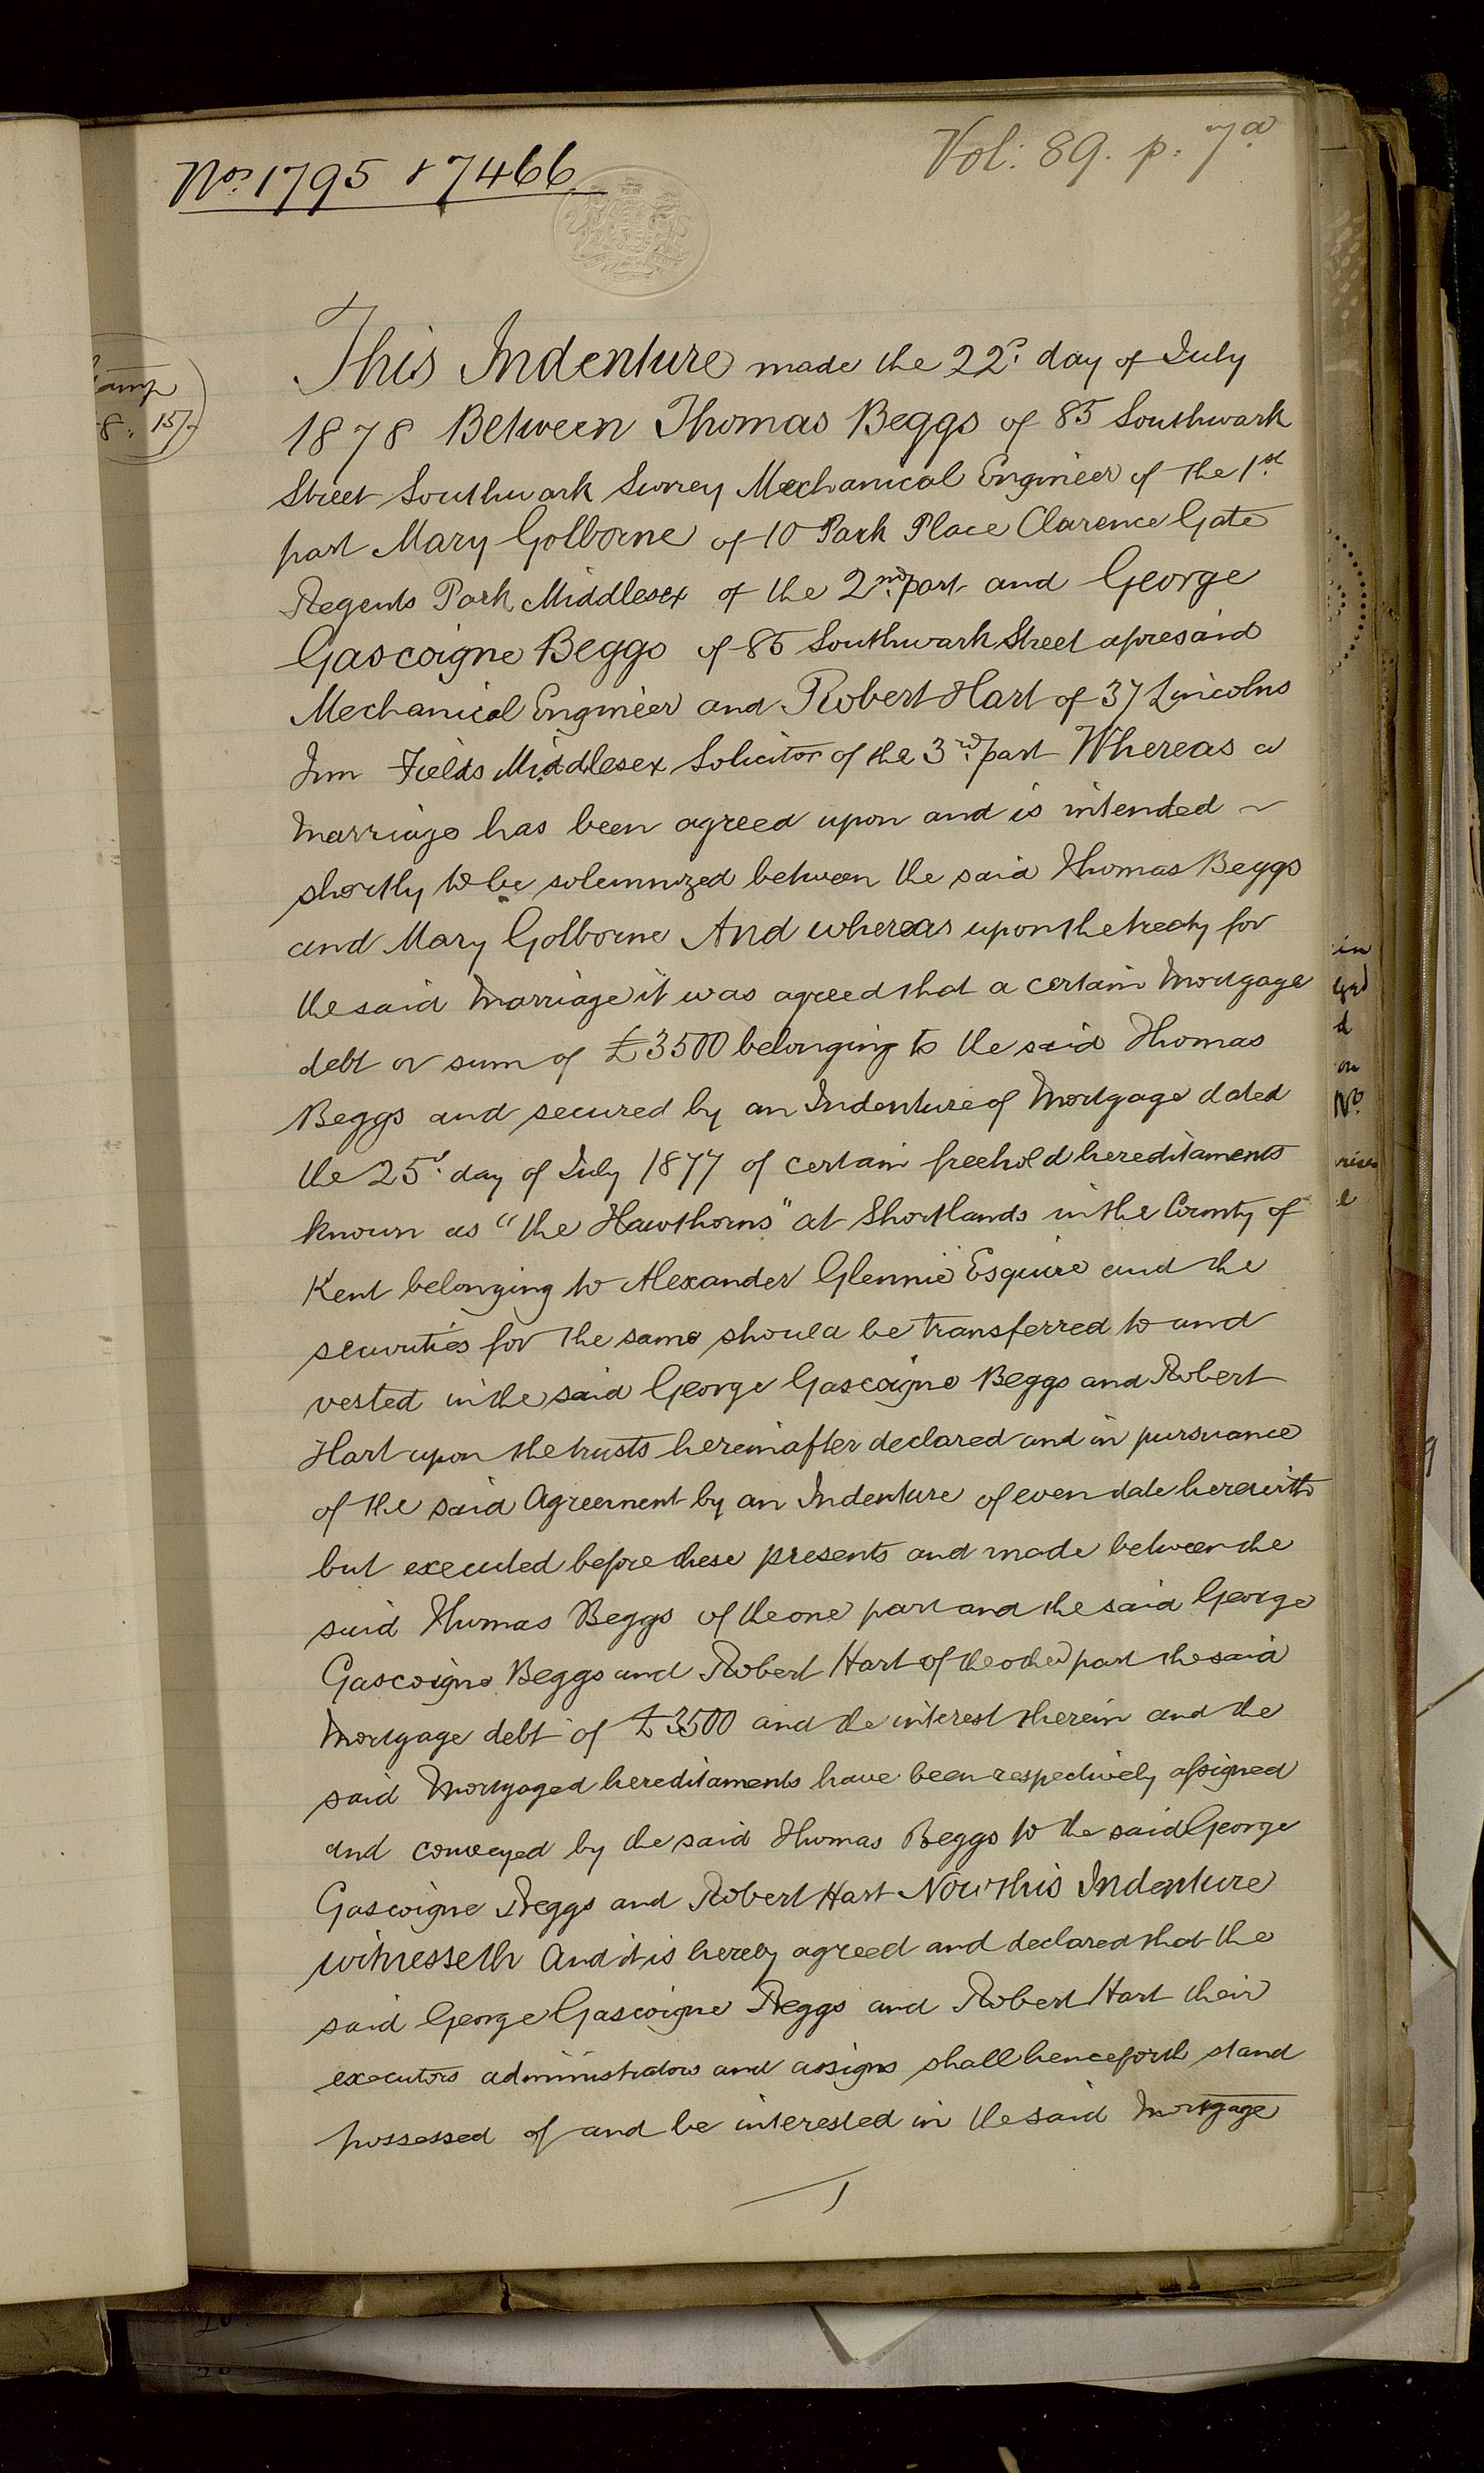 Nos. 1795 & 7466
Vol: 89. p. 7a
Stamp
8. 15/-
This Indenture made the 22d. day of July
1878 Between Thomas Beggs of 85 Southwark
Street Southwark Surrey Mechanical Engineer of the 1st.
part Mary Golborne of 10 Park Place Clarence Gate
Regents Park Middlesex of the 2nd. part and George
Gascoigne Beggs of 85 Southwark Street aforesaid
Mechanical Engineer and Robert Hart of 37 Lincolns
Inn Fields Middlesex Solicitor of the 3rd. part Whereas a
Marriage has been agreed upon and is intended
shortly to be solemnized between the said Thomas Beggs
and Mary Golborne And whereas upon the treaty for
the said Marriage it was agreed that a certain Mortgage
debt or sum of £3500 belonging to the said Thomas
Beggs and secured by an Indenture of Mortgage dated
the 25th. day of July 1877 of certain freehold hereditaments
known as "the Hawthorns" at Shortlands in the County of
Kent belonging to Alexander Glennie Esquire and the
securities for the same should be transferred to and
vested in the said George Gascoigne Beggs and Robert
Hart upon the trusts hereinafter declared and in pursuance
of the said Agreement by an Indenture of even date herewith
but executed before these presents and made between the
said Thomas Beggs of the one part and the said George
Gascoigne Beggs and Robert Hart of the other part the said
Mortgage debt of £3500 and the interest therein and the
said Mortgaged hereditaments have been respectively assigned
and conveyed by the said Thomas Beggs to the said George
Gascoigne Beggs and Robert Hart Now this Indenture
witnesseth And it is hereby agreed and declared that the
said George Gascoigne Beggs and Robert Hart their
executors administrators and assigns shall henceforth stand
possessed of and be interested in the said Mortgage